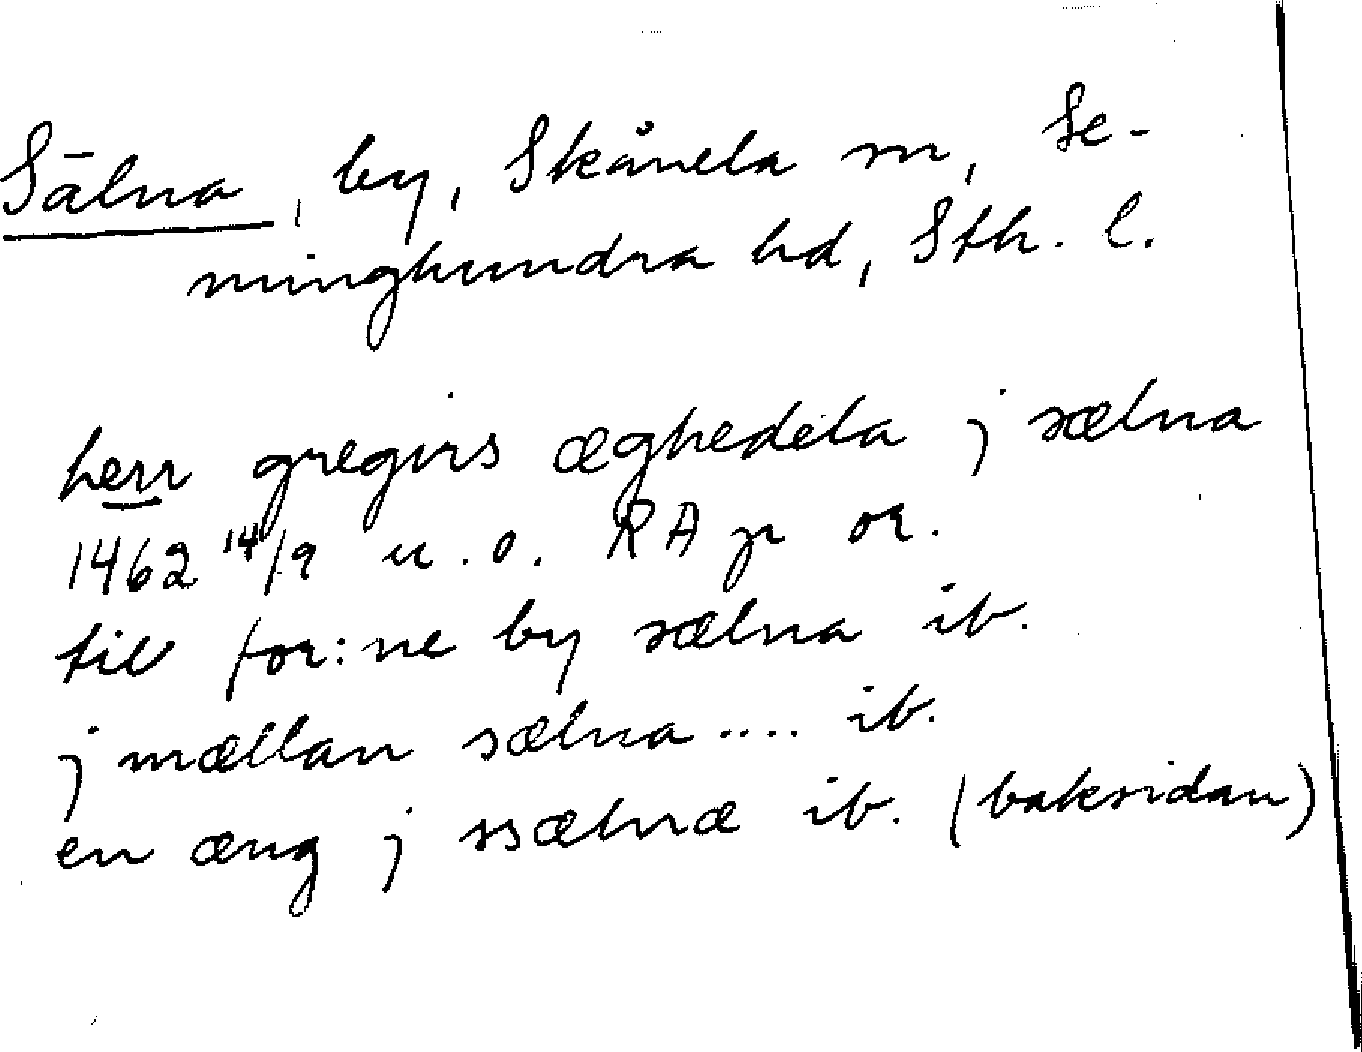 Sälna, by, Skånela sn, Se-
minghundra hd, Sth. l.
herr gregirs æghedela j sælna
1462 14/9 u.o. RA p or.
till for:ne by sælna ib.
j mællan sælna .... ib.
en æng j ssælnæ ib. (baksidan)